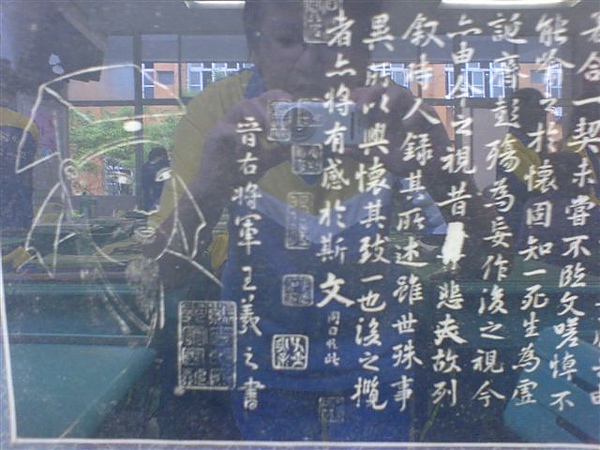 合一契未嘗不臨文嗟悼不
能喻之於懷固知一死生為虛
誕齊彭殤為妄作後之視今
亦由今之視昔悲夫故列
敘時人錄其所述雖世殊事
異所以興懷其致一也後之攬
者亦將有感於斯文
晉右將軍王羲之書